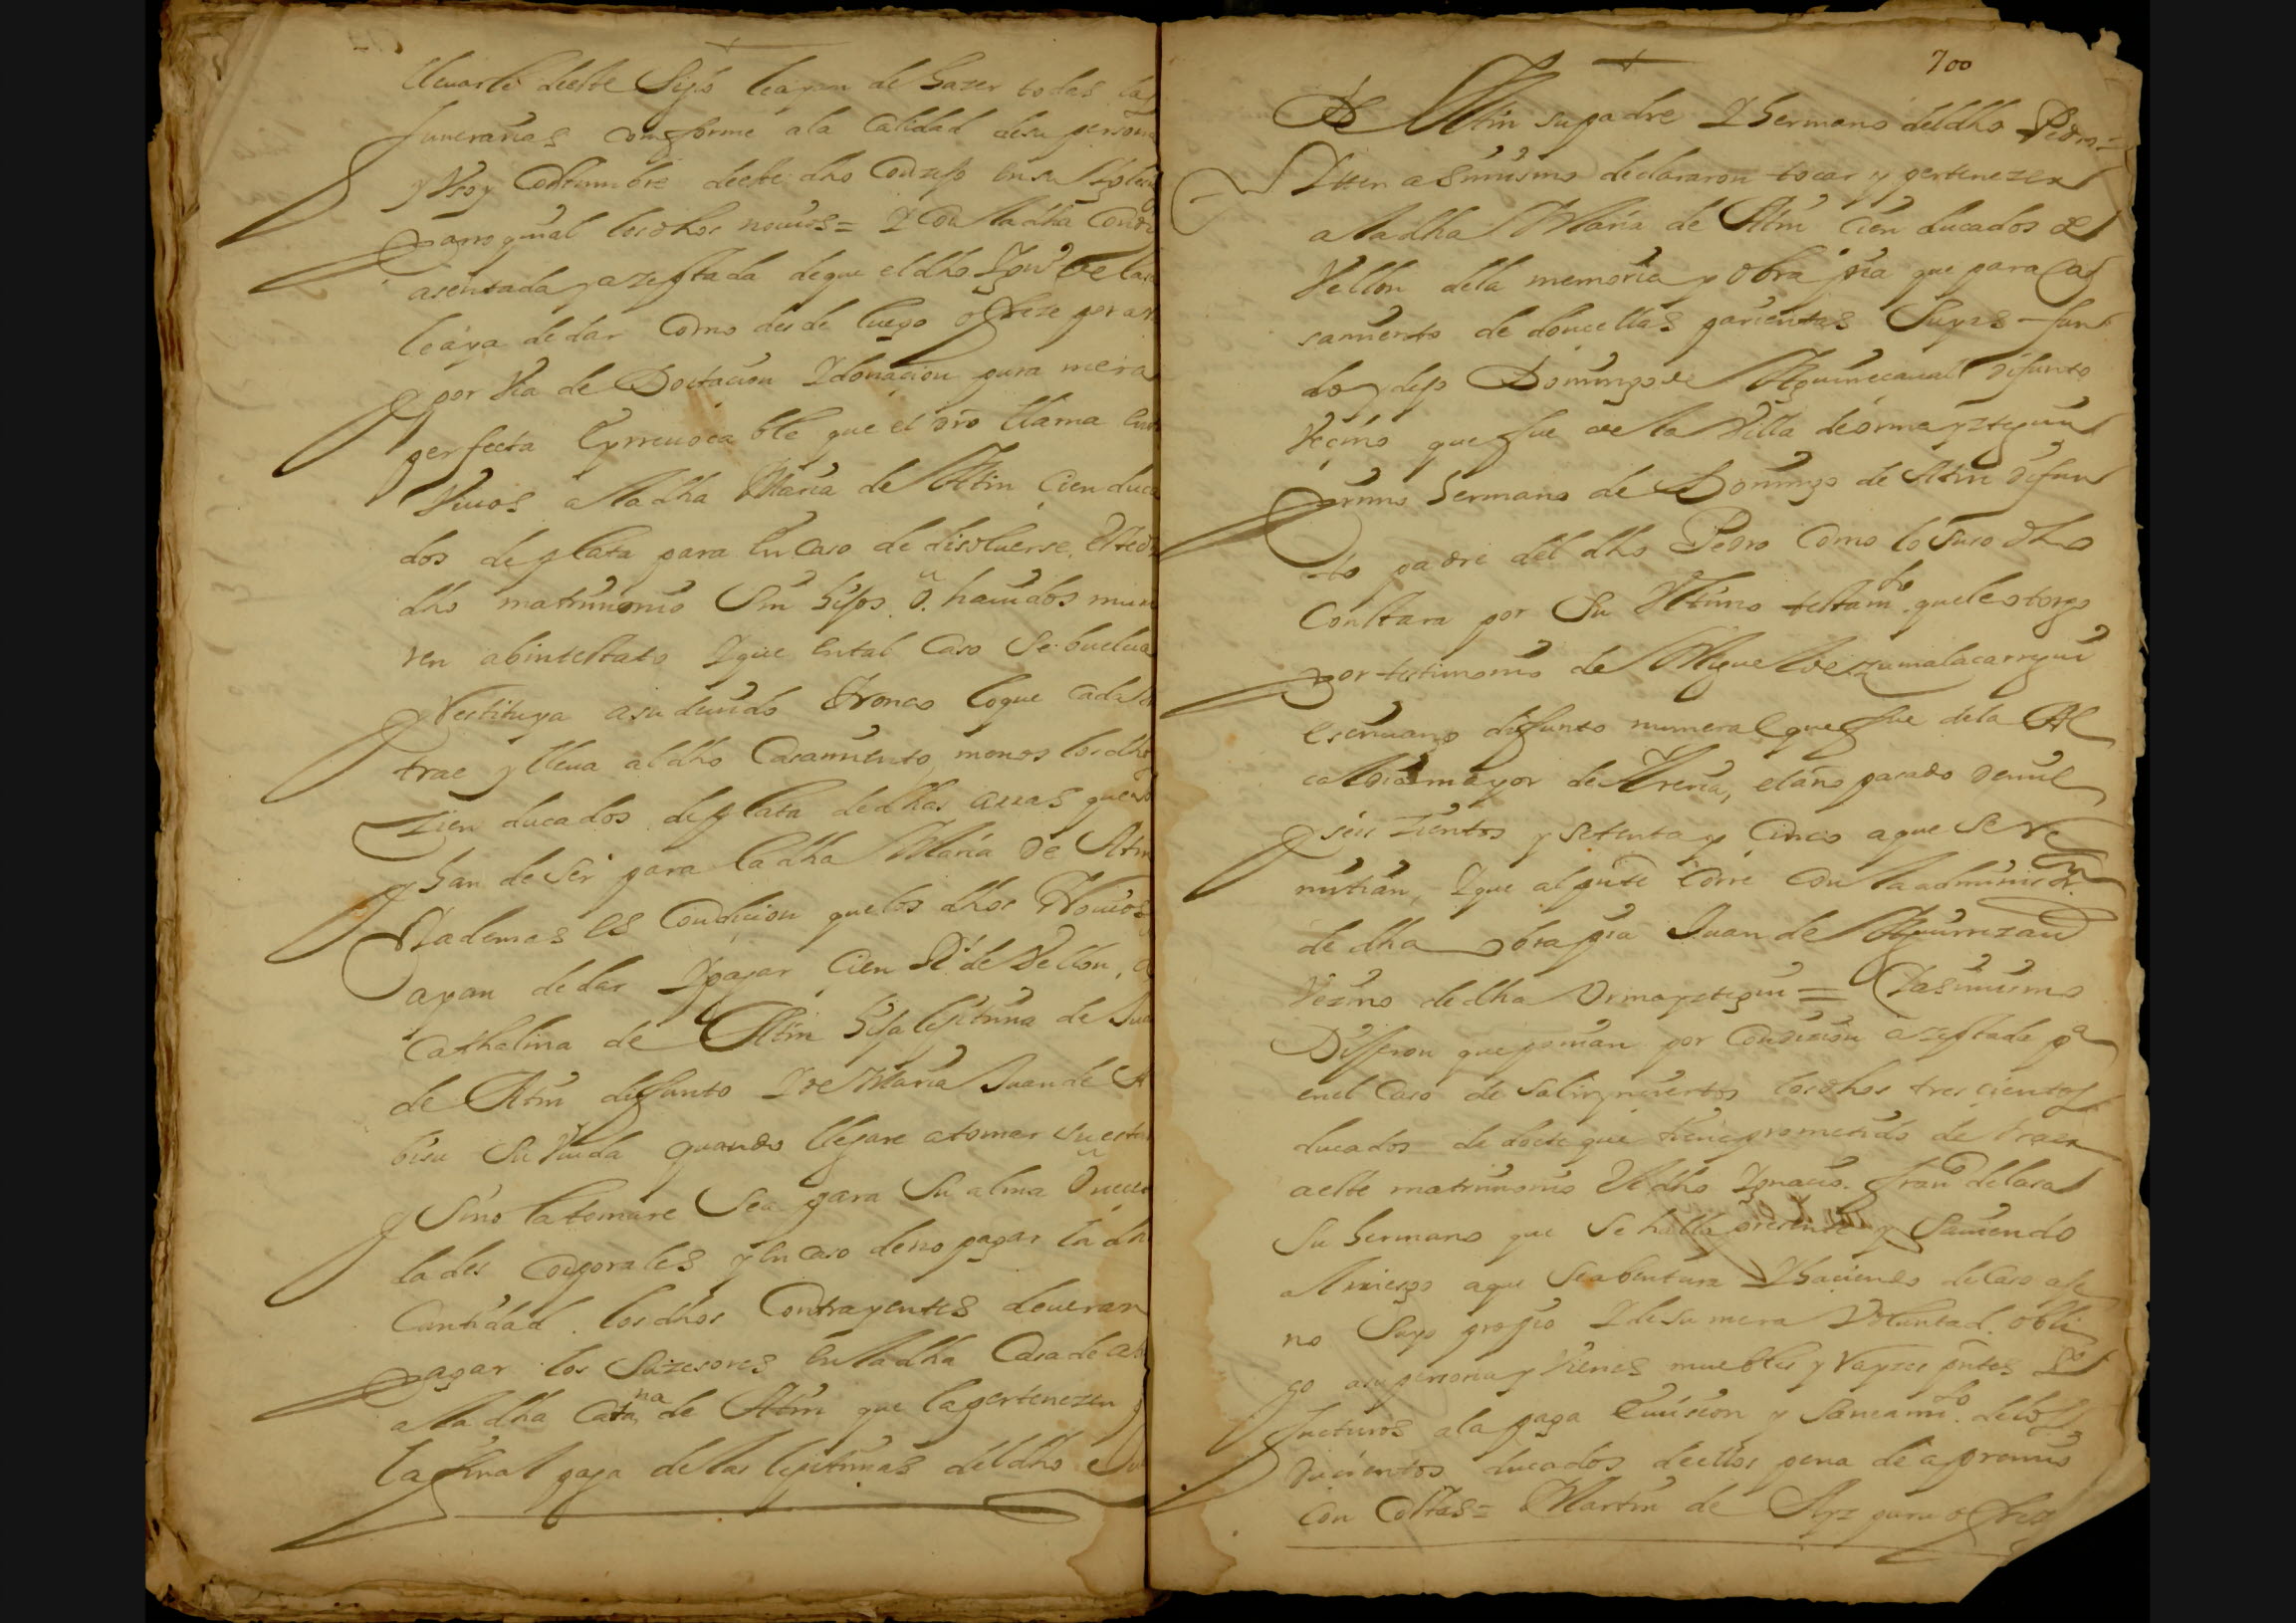 lleuarle deeste Siglo leayan de hazer todas las
funerarias comforme ala Calidad desu persona
y Vso y Costumbre deeste dho Conzejo en su Iglesia
Parroquial losdhos nouios = Y Con la dha Condi
asentada y azeptada deque eldho Ign.º de lasa
leaya dedar Como desde luego ofreze por ar
por Via de Doctacion Y donacion pura mera
perfecta Eyrreuocable que el dro llama entre
Viuos a la dha Maria de Atin Cien duca
dos de plata para En Caso de disoluerse El
dho matrimonio Sin hijos ô hauidos murie
ren abintestato Y que en tal Caso Se buelua
y Restituya asu deuido tronco loque Cada
trae y lleua al dho Casamiento menos los dhos
zien ducados de plata dedhas arras que
han de Ser para la dha Maria de Atin
Y ademas es Condicion que los dhos Nouios
ayan dedar Y pagar Cien D.s de Vellon, a
Cathalina de Atin hija lejitima de Jua
de Atin difunto Y de Maria Juan de A
bisu Su Viuda quando llegare atomar su esta
y Sino latomare Sea para Su alma ô nece
lades Corporales y En Caso de no pagar la dh
Cantidad los dhos Contrayentes deueran
pagar los Suzesores En la dha Casa de
a la dha Catana de Atin que lapertenezen
la final paga de las legitimas del dho Ju
700
De Atin su padre Y hermano del dho Pedro =
Itten asimismo declararon tocar y pertenezer
a la dha Maria de Atin Cien ducados de
Vellon dela memoria y obra pia que para Ca
samiento de doncellas parientas Suyas fun
do y dejo Domingo de Aguinecaual difunto
Vecino que fue de la Villa de ormayztegui
primo hermano de Domingo de Atin difun
to padre del dho Pedro Como lo Suso dho
Constara por Su Vltimo testam.to quele otorgo
por testimonio de Miguel de zumalacarregui
escriuano difunto numeral que fue dela Al
caldia mayor de Areria, el año pasado de mil
y seis zientos y setenta y Cinco aque Se Re
mitian, Y que al press.te Corre Con la administr.on
de dha obra pia Juan de
Vezino de dha Ormayztegui = Y asimismo
Dijeron que ponian por Condizion azeptada p.a
en el Caso de salir inciertos los dhos trescientos
ducados de dote que tiene prometido de traer
aeste matrimonio El dho Ignacio. fran.co de lasa
su hermano que Se halla presente y Sauiendo
el rriesgo aque Seabentura Y haciendo de Caso aje
no Suyo propio Y desu mera Voluntad obli
go asu persona y Vienes muebles y Rayzes press.tes Y
fucturos ala paga Euicion y Saneami.to delos
Ducientos ducados deellos pena de apremio
Con Costas = Martin de Ayz puru ofrez